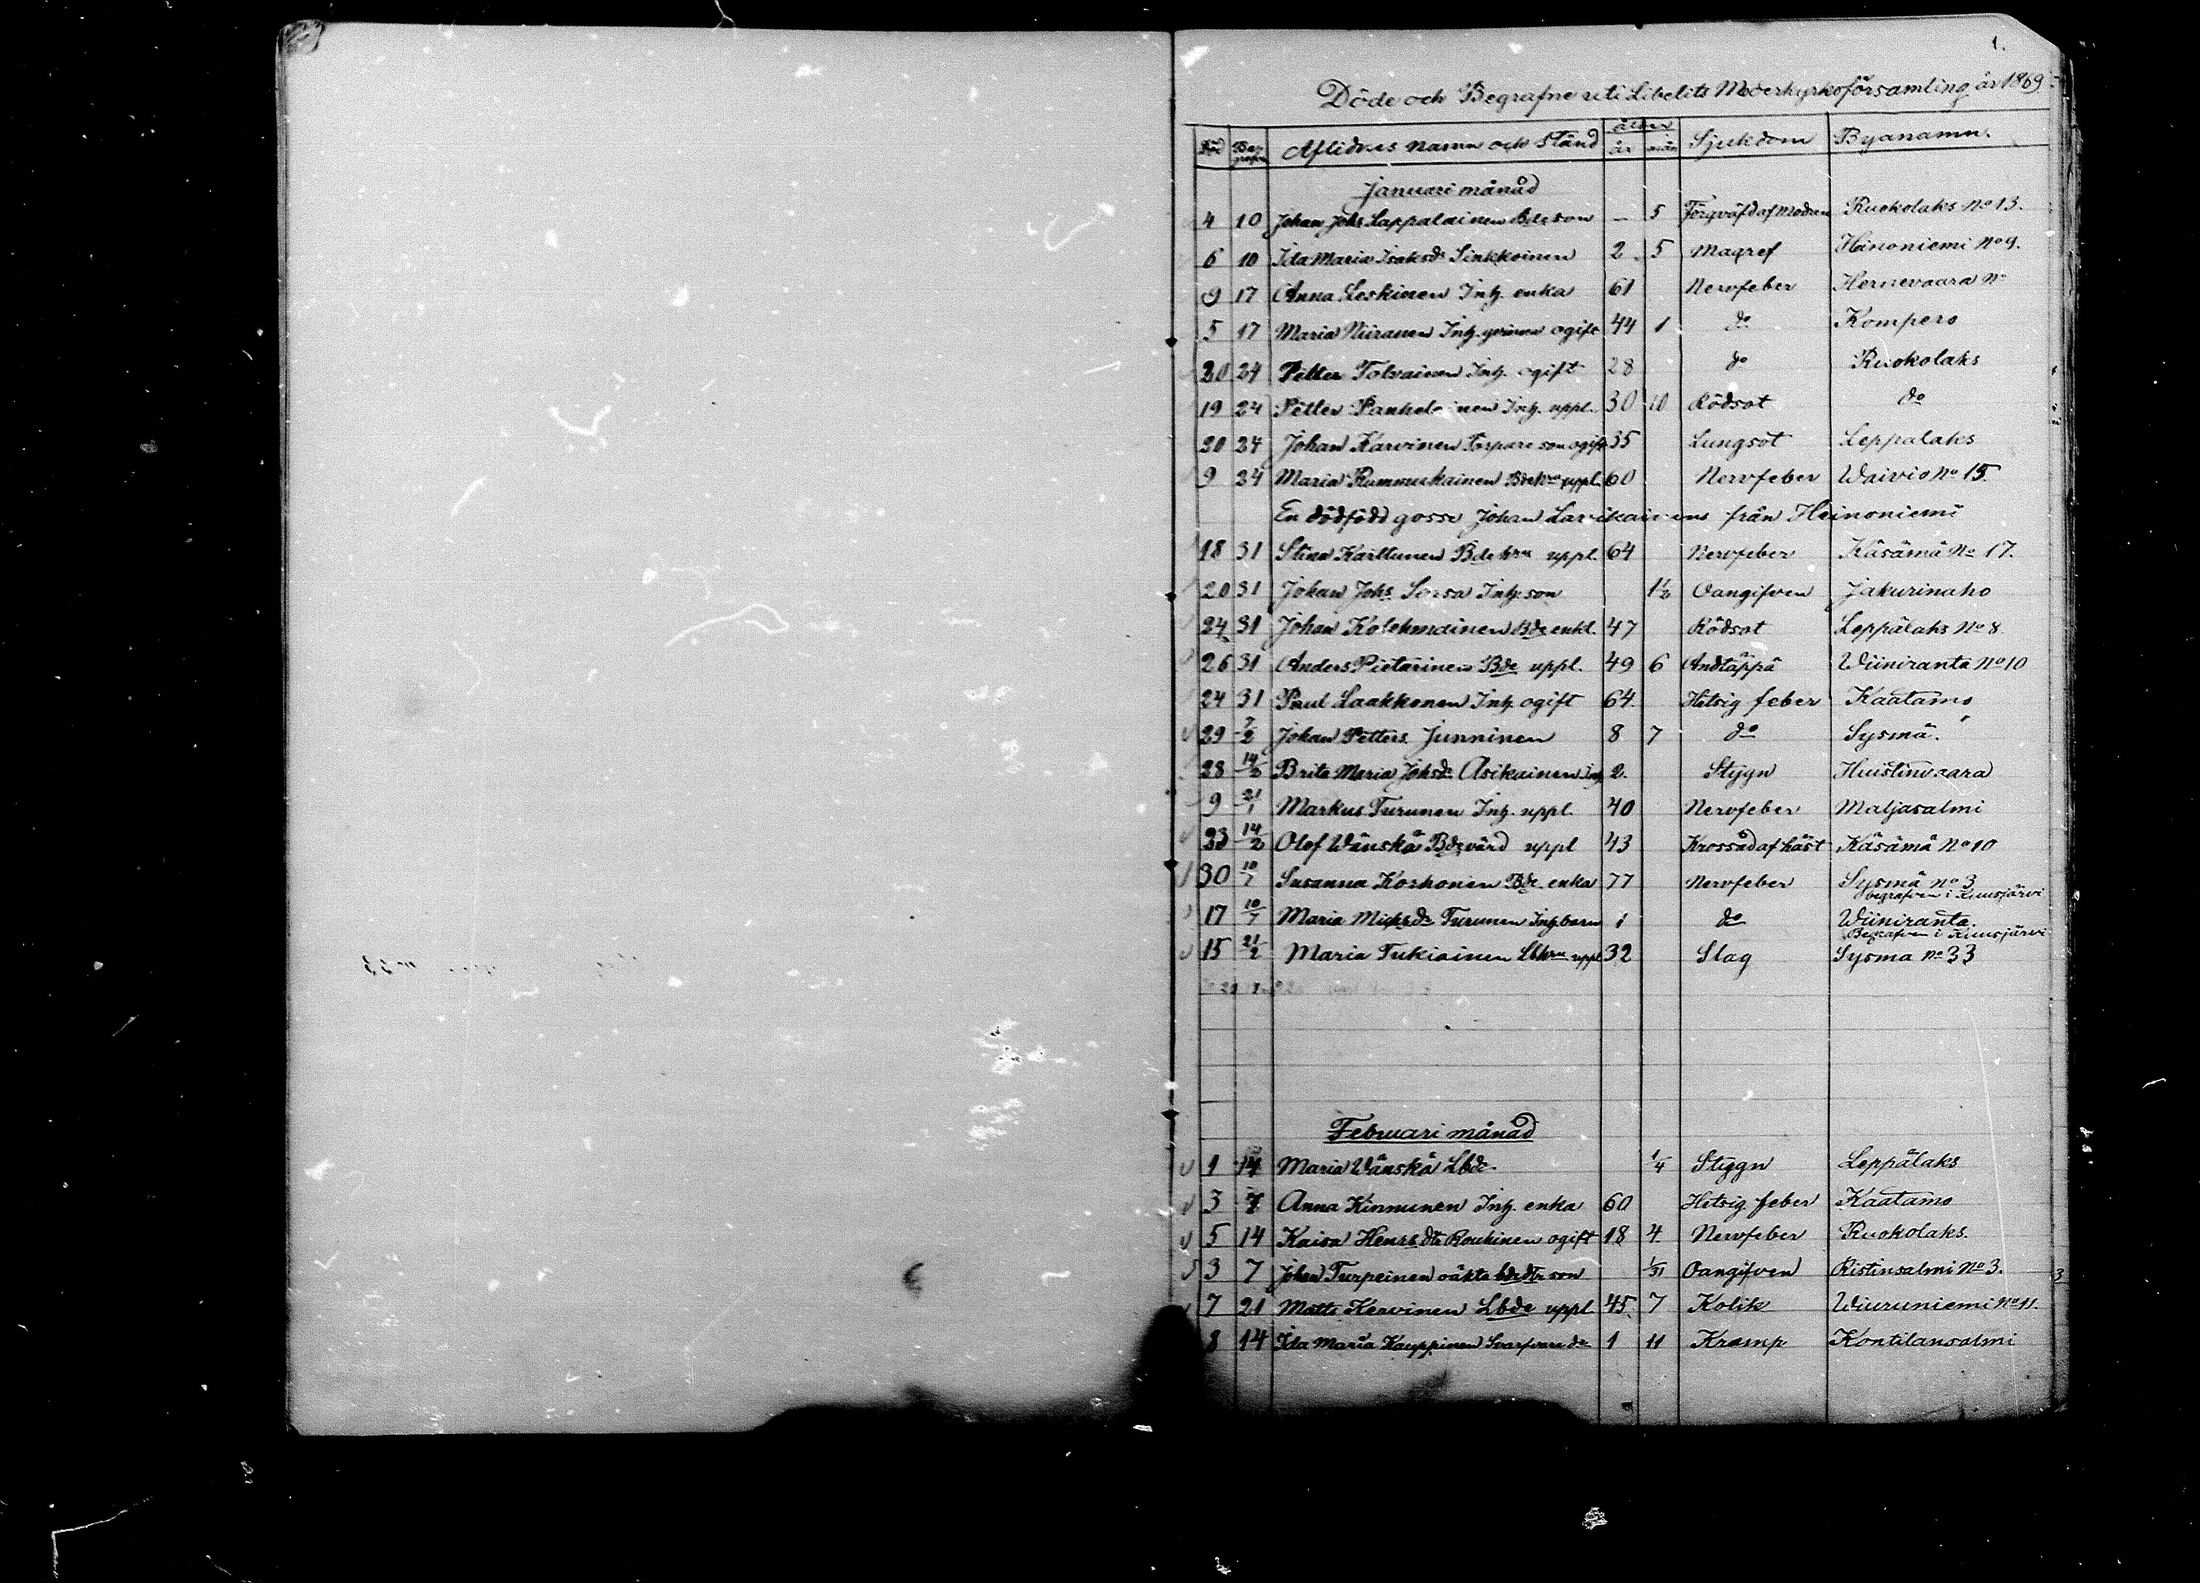 1.
Döde och Begrafne uti Libelits Moderkyrkoförsamling år 1869
Död Begrafn Aflidnes namn och Stånd ålder år mån Sjukdom Byanamn.
Januari månad
4 10 Johan Johs Lappalainen Bde son — 5 Förqväfd af Modren Ruokolaks No 13.
6 10 Ida Maria Isaksdr Sinkkoinen 2 5 Magref Heinoniemi No 9.
9 17 Anna Leskinen Inh. enka 61 Nervfeber Hernevaara No
5 17 Maria Niiranen Inh. ogift 44 1 do Kompero
20 24 Petter Tolvainen Inh. ogift 28 do Ruokolaks
19 24 Petter Inh. uppl. 30 10 Rödsot do
20 24 Johan Karvinen Torpare son ogift 35 Lungsot Leppälaks
9 24 Maria Rummukainen Bdehru uppl. 60 Nervfeber Waivio No 15.
En dödfödd gosse Johan från Heinoniemi
18 31 Stina Karttunen Bdehru uppl. 64 Nervfeber Käsämä No 17.
20 31 Johan Johs Sorsa Inh. son 1½ Oangifven Jakurinaho
24 31 Johan Kolehmainen Bde enkl. 47 Rödsot Leppälaks No 8
26 31 Anders Pietarinen Bde uppl. 49 6 Andtäppa Wiiniranta No 10
24 31 Paul Laakkonen Inh. ogift 64. Hetsig feber Kaatamo
29 7/2 Johan Petters Junninen 8 7 do Sysmä.
28 14/2 Brita Maria Johsdr Asikainen Inh 2. Stygn Huistinvaara
9 21/1 Markus Turunen Inh. uppl. 40 Nervfeber Maljasalmi
23 14/2 Olof Wänskä Bdevärd uppl 43 Krossad af häst Käsämä No 10
30 10/7 Susanna Koskonen Bde. enka 77 Nervfeber Sysmä No 3
begrafven i Kuusjärvi
17 10/7 Maria Michsdr Turunen Inh. barn 1 do Wiiniranta.
Begrafven i Kuusjärvi
15 21/2 Maria Tukiainen Lbhru uppl 32 Slag Sysma No 33
Februari månad
1 14 Maria Wänskä Lbde. 1/4 Stygn Leppälaks
3 7 Anna Kinnunen Inh. enka 60 Hetsig feber Kaatamo
5 14 Kaisa Henrs dtr Roukinen ogift 18 4 Nervfeber Ruokolaks.
3 7 Johan Turpeinen oäkta bde dtr son 1/31 Oangifven Ristinsalmi No 3.
7 21 Matts Kervinen Lbde uppl 45. 7 Kolik Wiuruniemi No 11.
8 14 Ida Maria Kauppinen Svarfvare dr 1 11 Kramp Kontilansalmi